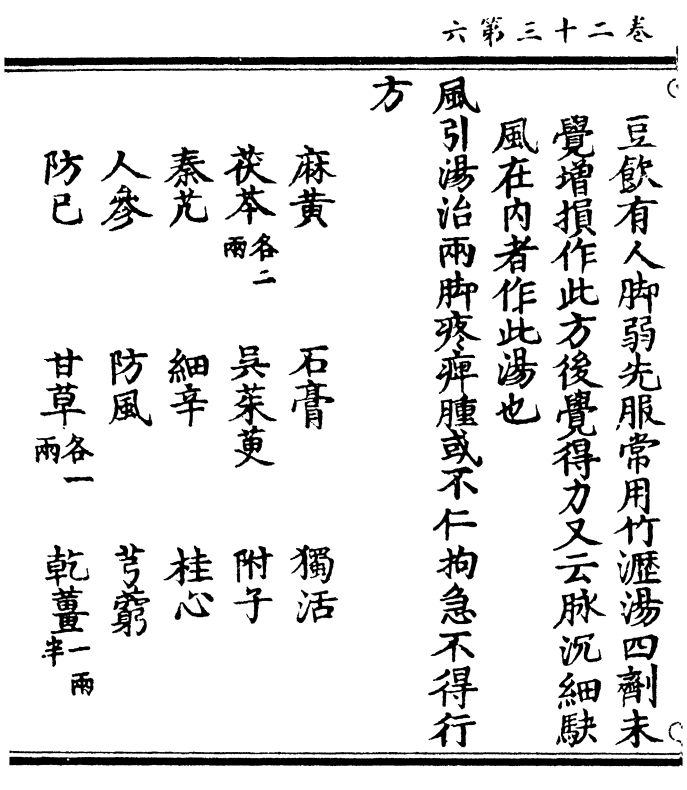 卷二十三第六
豆飲有人脚弱先服常用竹瀝湯四劑未
覺增損作此方後覺得力又云脉沉細駃
風在内者作此湯也
風引湯治兩脚疼痺腫或不仁拘急不得行
方
麻黄 石膏 獨活
茯苓各二兩 吳茱萸 附子
秦艽 細辛 桂心
人參 防風 芎藭
防已 甘草各一兩 乾薑一兩半